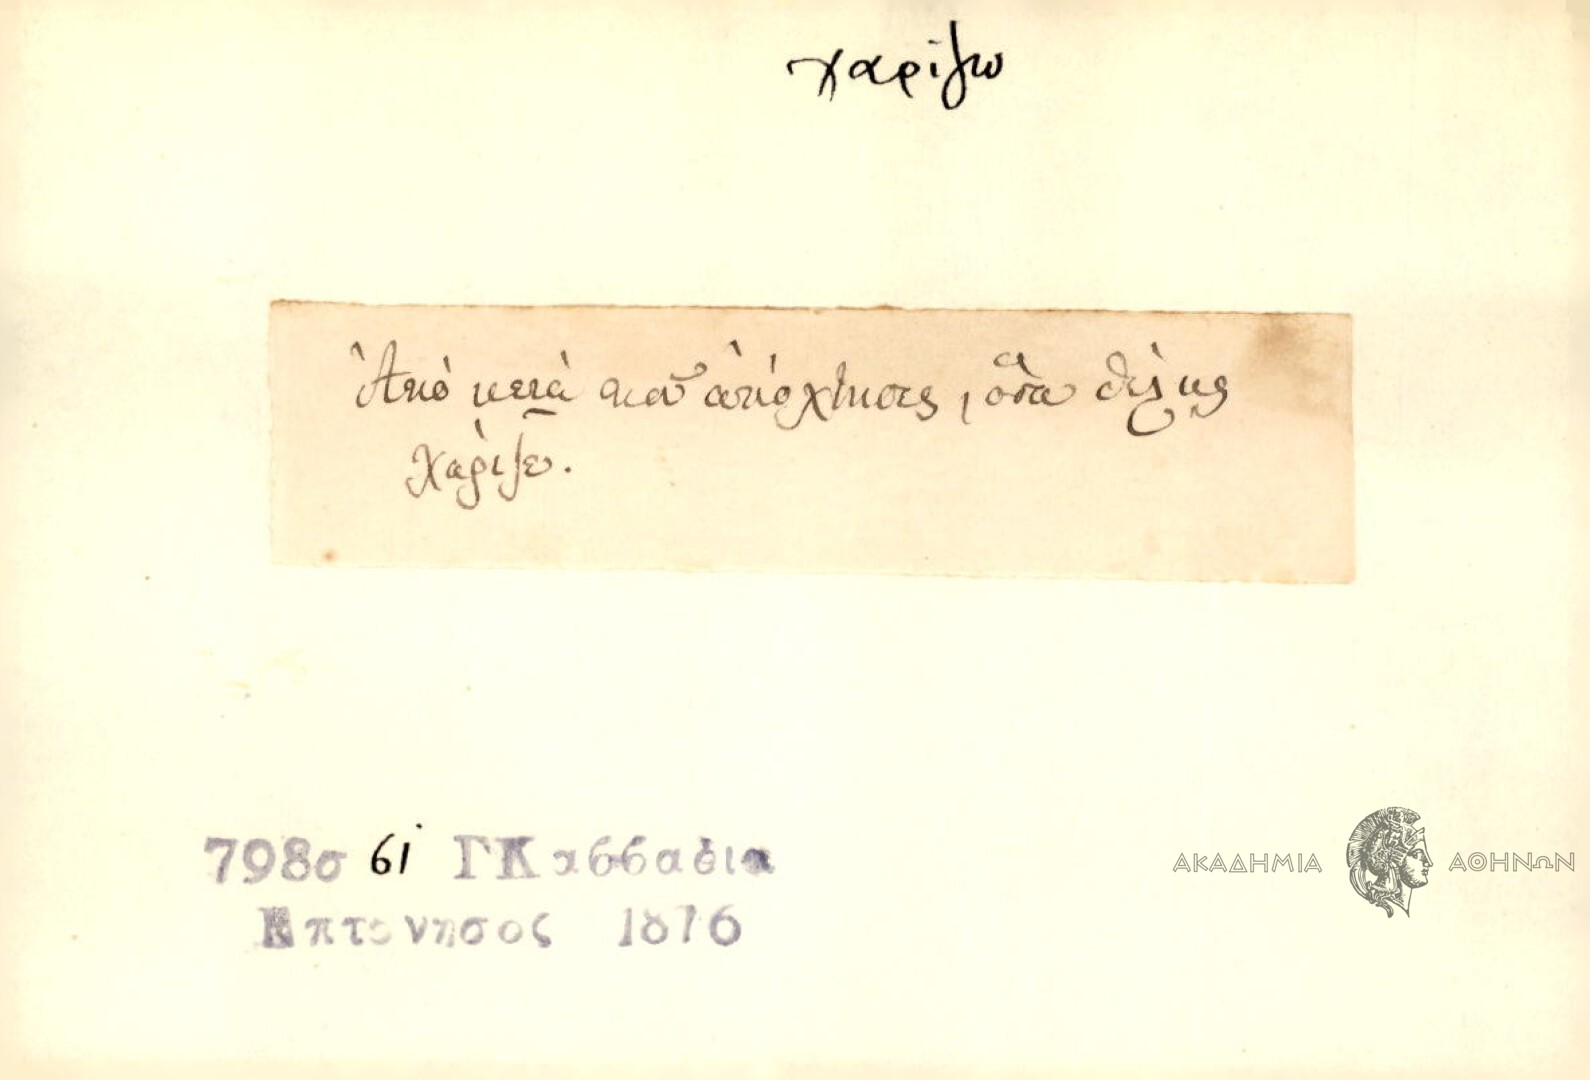 χαρίζω
Ἀπὸ κειὰ ποῦ ἀπόχτησες, ὅσα θέλεις
χάριζε.
798σ 61 ΓΚαββαδια
Επτανησος 1876
ΑΚΑΔΗΜΙΑ ΑΘΗΝΩΝ